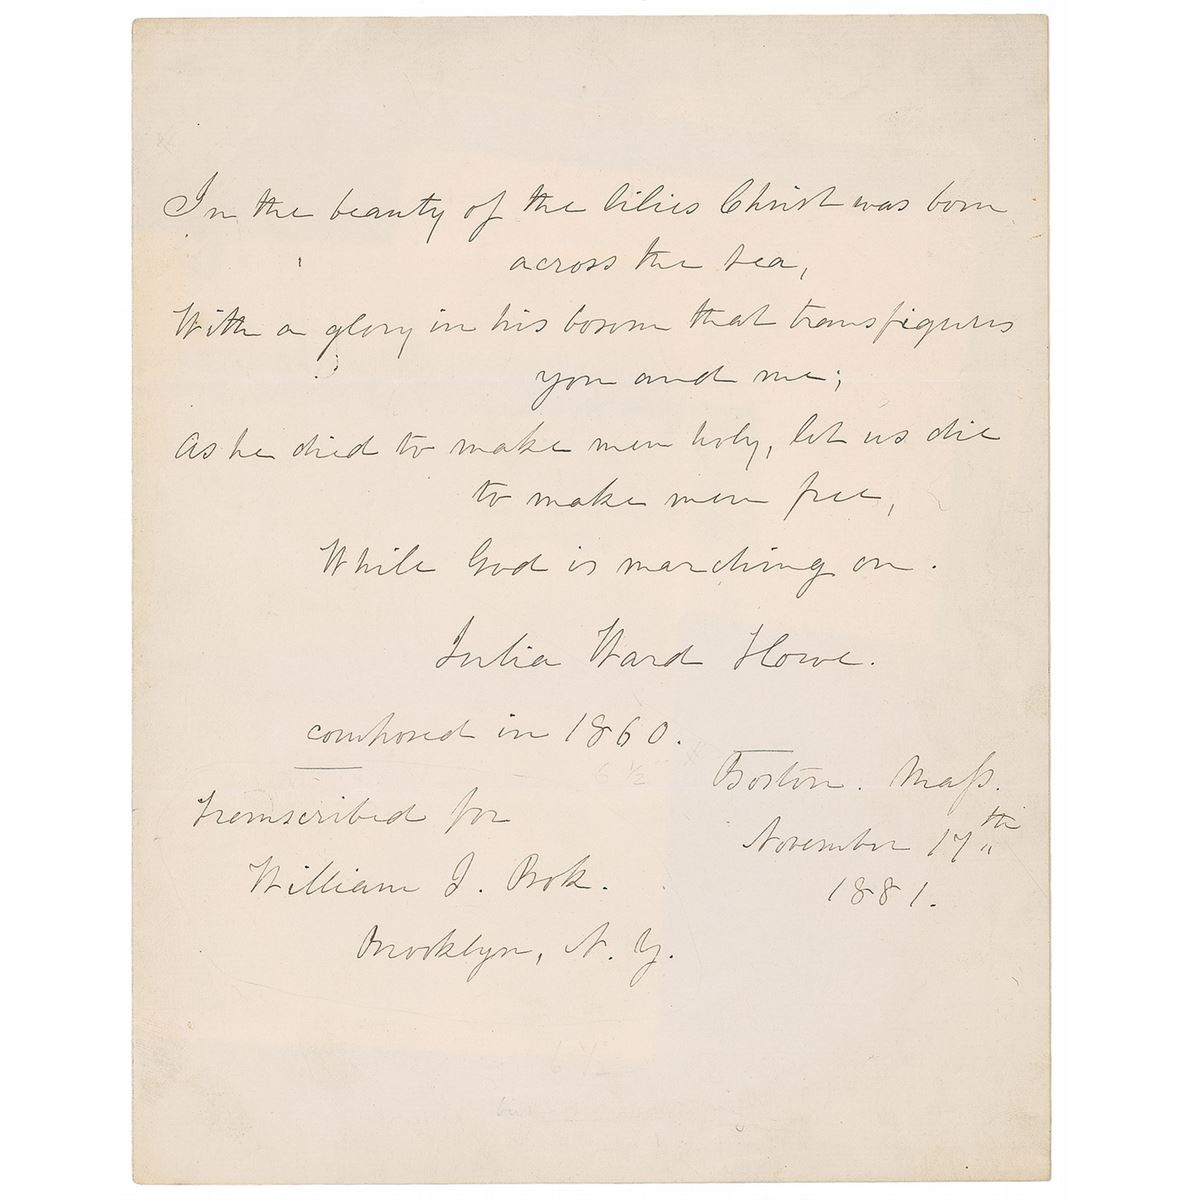 In the beauty of the lilies Christ was born
across the sea,
With a glory in his bosom that transfigures
you and me;
As he died to make men holy, let us die
to make men free,
While God is marching on.
Julia Ward Howe.
composed in 1860.
Boston. Mass.
November 17th
1881.
Transcribed for
William J. Bok.
Brooklyn, N. Y.
6 1/2
6 1/2